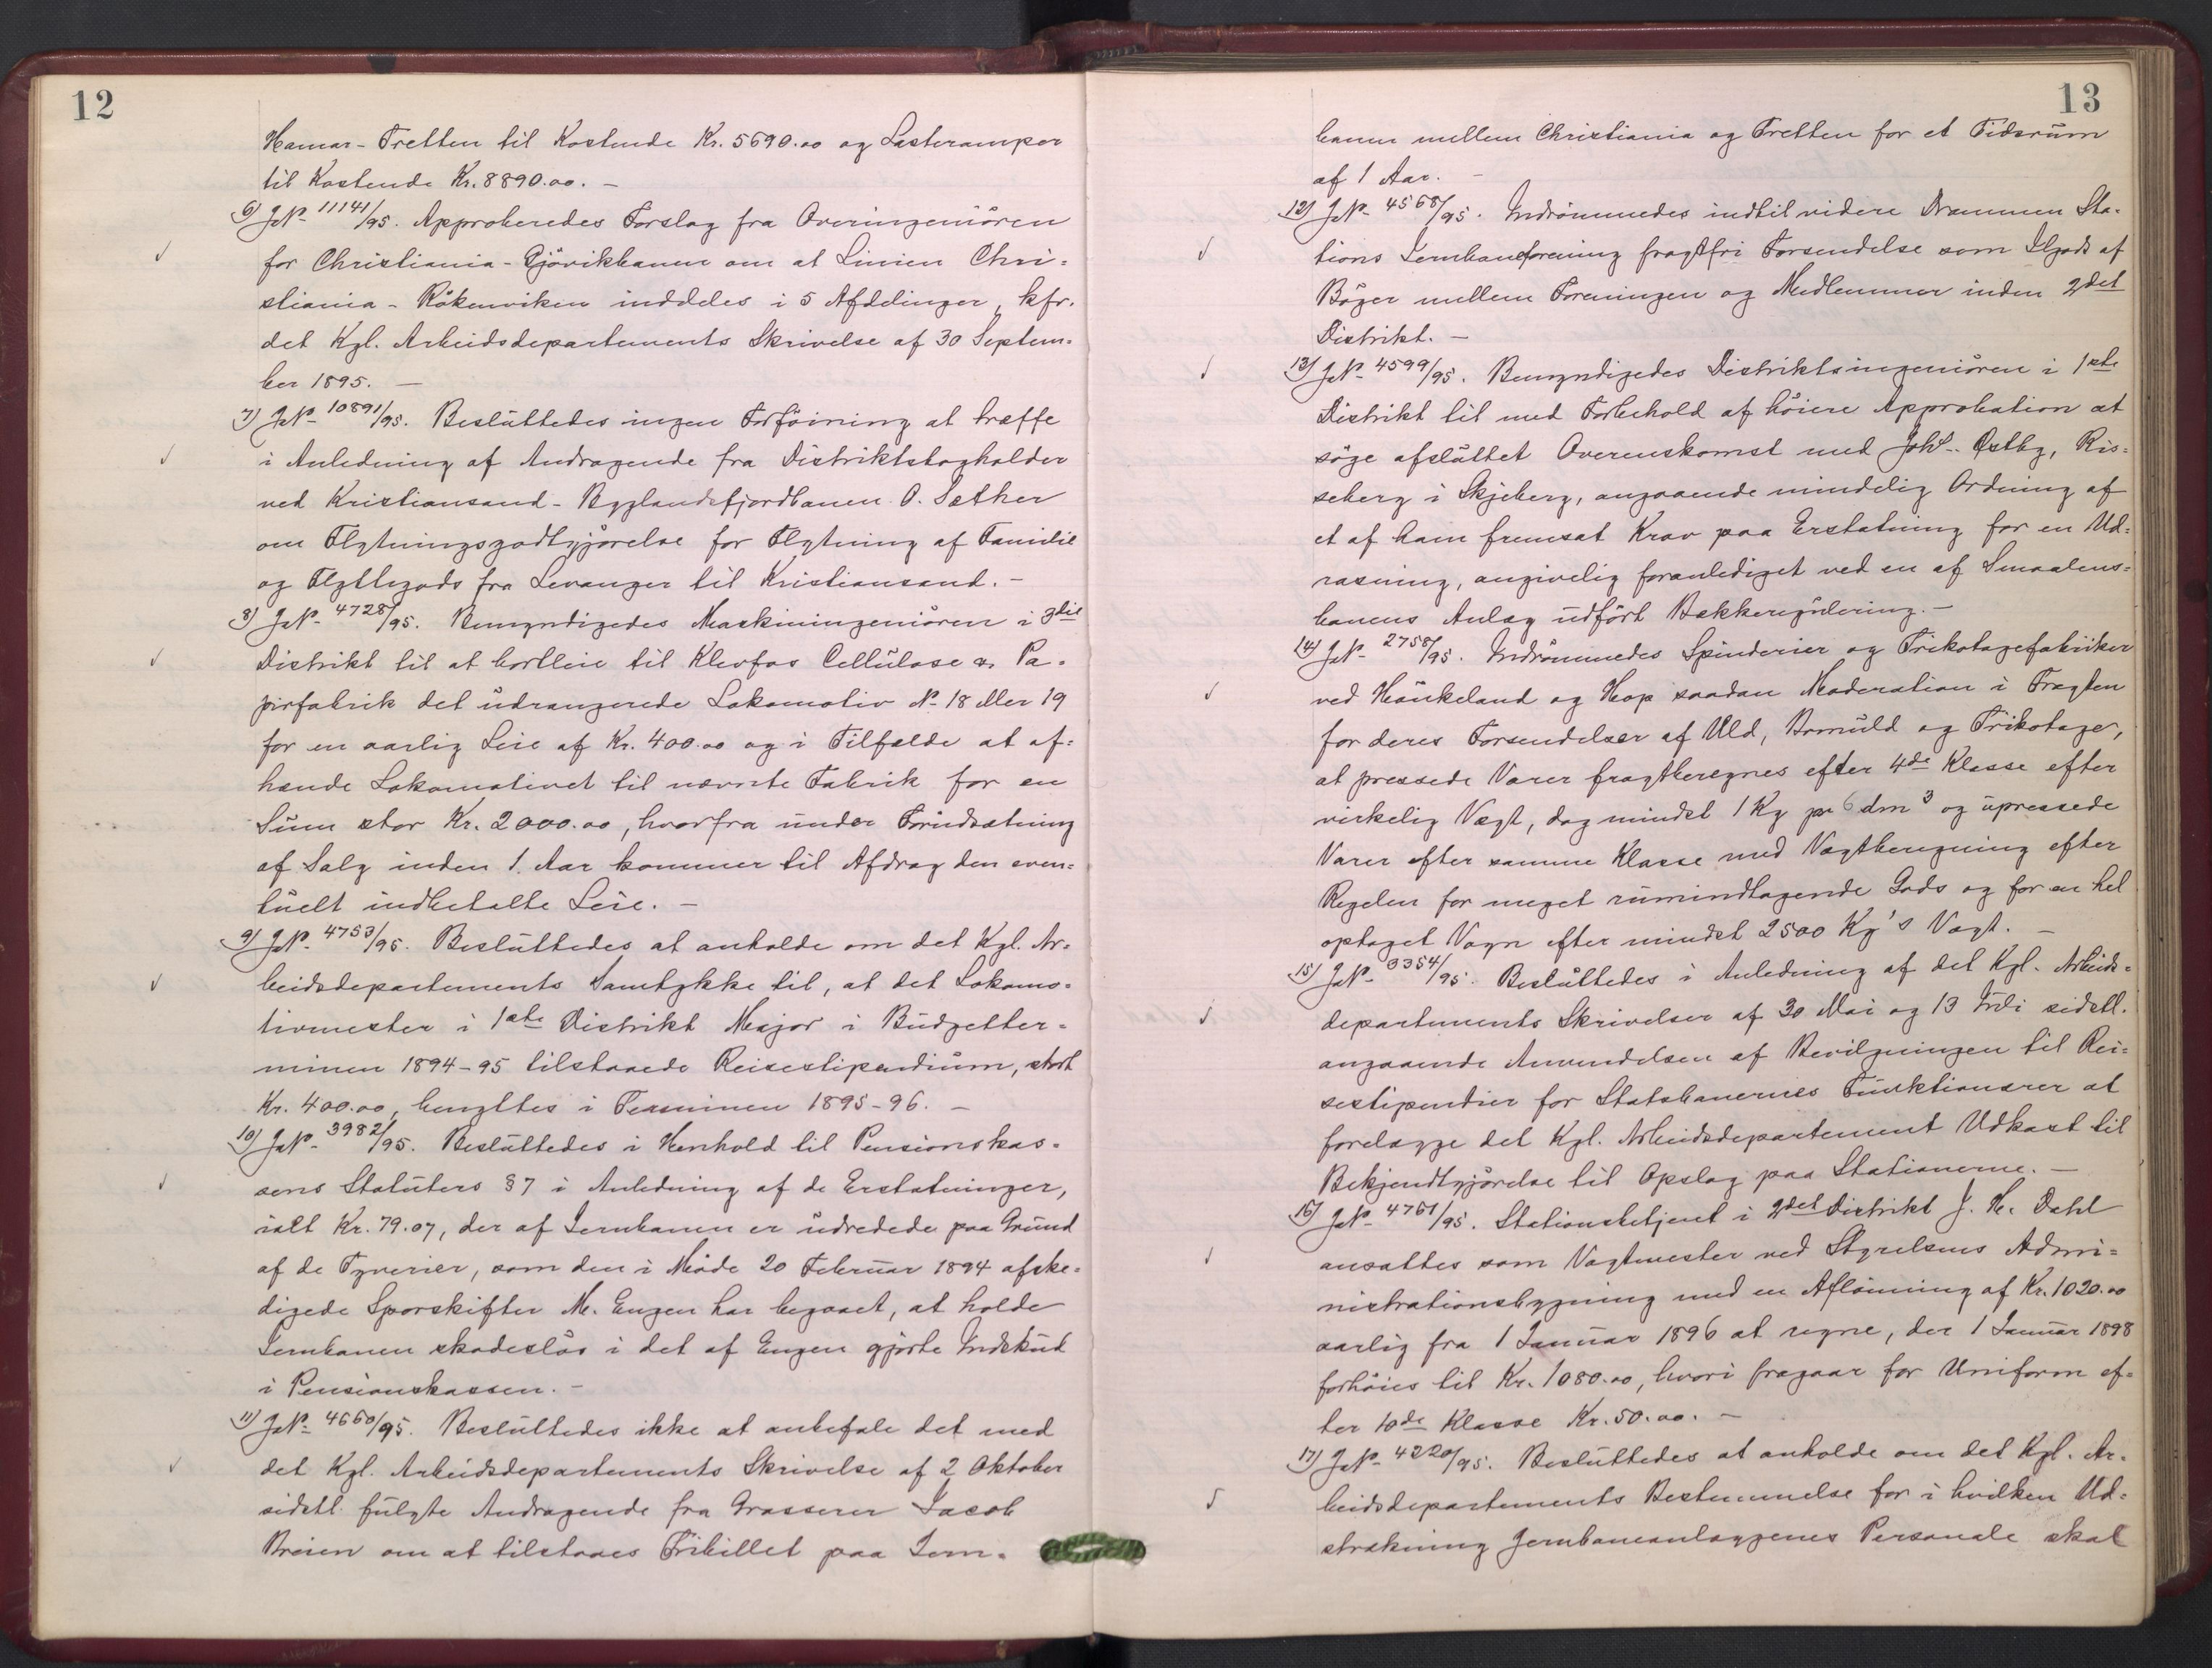 12
Hamar-Tretten til Kostende Kr. 5690.00 og Lasteramper
til Kostende Kr. 8890.00. —
6) JN° 11141/95. Approberedes Forslag fra Overingeniören
for Christiania-Gjövikbanen om at Linien Chri-
stiania-Rökenviken inddeles i 5 Afdelinger, kfr.
det Kgl. Arbeidsdepartements Skrivelse af 30 Septem-
ber 1895. —
7) JN° 10891/95. Besluttedes ingen Forföining at træffe
i Anledning af Andragende fra Distriktstogholder
ved Kristiansand-Byglandsfjordbanen O. Sæther
om Flytningsgodtgjörelse for Flytning af Familie
og Flyttegods fra Levanger til Kristiansand. —
8) JN° 4728/95. Bemyndigedes Maskiningeniören i 3die
Distrikt til at bortleie til Klevfos Cellulose & Pa-
pirfabrik det udrangerede Lokomotiv N° 18 eller 19
for en aarlig Leie af Kr. 400.00 og i Tilfælde at af-
hænde Lokomotivet til nævnte Fabrik for en
Sum stor Kr. 2000.00, hvorfra under Forudsætning
af Salg inden 1. Aar kommer til Afdrag den even-
tuelt indbetalte Leie. —
9) JN° 4753/95. Besluttedes at anholde om det Kgl. Ar-
beidsdepartements Samtykke til, at det Lokomo-
tivmester i 1ste Distrikt Major i Budgetter-
minen 1894-95 tilstaaede Reisestipendium, stort
Kr. 400.00, benyttes i Terminen 1895-96. —
10) JN° 3982/95. Besluttedes i Henhold til Pensionskas-
sens Statuters § 7 i Anledning af de Erstatninger,
ialt Kr. 79.07, der af Jernbanen er udredede paa Grund
af de Tyverier, som den i Möde 20 Februar 1894 afske-
digede Sporskifter M. Engen har begaaet, at holde
Jernbanen skadeslös i det af Engen gjorte Indskud
i Pensionskassen. —
11) JN° 4660/95. Besluttedes ikke at anbefale det med
det Kgl. Arbeidsdepartements Skrivelse af 2 Oktober
sidstl. fulgte Andragende fra Grosserer Jacob
Breien om at tilstaaes Fribillet paa Jern-
13
banen mellem Christiania og Tretten for et Tidsrum
af 1 Aar. —
12) JN° 4568/95. Indrömmedes indtil videre Drammen Sta-
tions Jernbaneforening fragtfri Forsendelse som Ilgods af
Böger mellem Foreningen og Medlemmer inden 2det
Distrikt. —
13) JN° 4599/95. Bemyndigedes Distriktsingeniören i 1ste
Distrikt til med Forbehold af höiere Approbation at
söge afsluttet Overenskomst med Johs. Østby, Ris-
seberg i Skjeberg, angaaende mindelig Ordning af
et af ham fremsat Krav paa Erstatning for en Ud-
rasning, angivelig foranlediget ved en af Smaalens-
banens Anlæg udfört Bækkeregulering. —
14) JN° 2758/95. Indrömmedes Spinderier og Trikotagefabriker
ved Haukeland og Hop saadan Moderation i Fragten
for deres Forsendelser af Uld, Bomuld og Trikotager,
at pressede Varer fragtberegnes efter 4de Klasse efter
virkelig Vægt, dog mindst 1 Kg pr 6 dm³ og upressede
Varer efter samme Klasse med Vægtberegning efter
Regelen for meget rumindtagende Gods og for en hel
optaget Vogn efter mindst 2500 Kg's Vægt. —
15) JN° 3354/95. Besluttedes i Anledning af det Kgl. Arbeids-
departements Skrivelser af 30 Mai og 13 Juli sidstl.
angaaende Anvendelsen af Bevilgningen til Rei-
sestipendier for Statsbanernes Funktionærer at
forelægge det Kgl. Arbeidsdepartement Udkast til
Bekjendtgjörelse til Opslag paa Stationerne. —
16) JN° 4761/95. Stationsbetjent i 2det Distrikt J. H. Dahl
ansattes som Vagtmester ved Styrelsens Admi-
nistrationsbygning med en Aflönning af Kr. 1020.00
aarlig fra 1 Januar 1896 at regne, der 1 Januar 1898
forhöies til Kr. 1080.00, hvori fragaar for Uniform ef-
ter 10de Klasse Kr. 50.00. —
17) JN° 4220/95. Besluttedes at anholde om det Kgl. Ar-
beidsdepartements Bestemmelse for i hvilken Ud-
strækning Jernbaneanlæggenes Personale skal